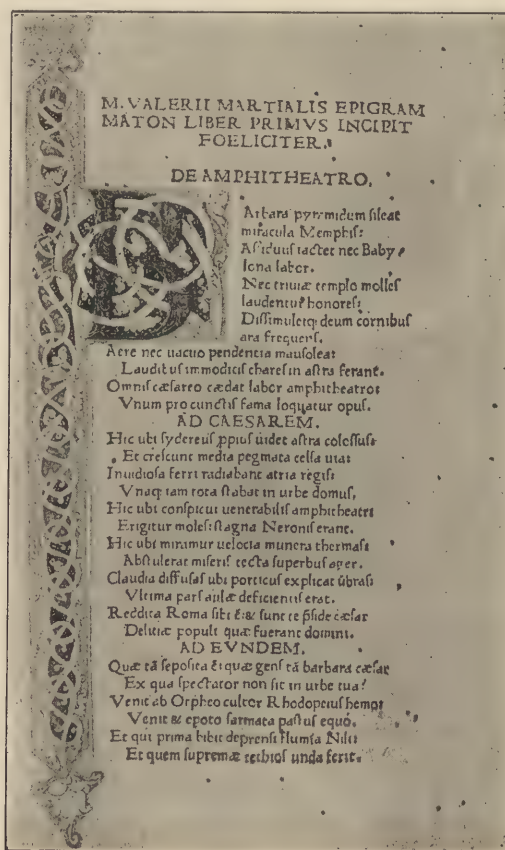 M. VALERII MARTIALIS EPIGRAM
MATON LIBER PRIMVS INCIPIT
FOELICITER.
DE AMPHITHEATRO.
BArbara pyramidum sileat
miracula Memphis:
Assiduus iactet nec Baby
lona labor.
Nec triuiæ templo molles
laudentur honores:
Dissimuletq; deum cornibus
ara frequens.
Aere nec uacuo pendentia mausolea:
Laudibus immodicis chares in astra ferant.
Omnis cæsareo cædat labor amphitheatro:
Vnum pro cunctis fama loquatur opus.
AD CAESAREM.
Hic ubi sydereus ppius uidet astra colossus:
Et crescunt media pegmata celsa uia:
Inuidiosa feri radiabant atria regis:
Vnaq; iam tota stabat in urbe domus.
Hic ubi conspicui uenerabilis amphitheatri
Erigitur moles: stagna Neronis erant.
Hic ubi miramur uelocia munera thermas:
Abstulerat miseris tecta superbus ager.
Claudia diffusas ubi porticus explicat ūbras:
Vltima pars aulæ deficientis erat.
Reddita Roma sibi ē: & sunt te pside cæsar
Delitiæ populi quæ fuerant domini.
AD EVNDEM.
Quæ tā seposita ē: quæ gens tā barbara cæsar
Ex qua spectator non sit in urbe tua?
Venit ab Orpheo cultor Rhodopeius hemo:
Venit & epoto sarmata pastus equo.
Et qui prima bibit deprensi flumina Nili:
Et quem supremæ tethios unda ferit.